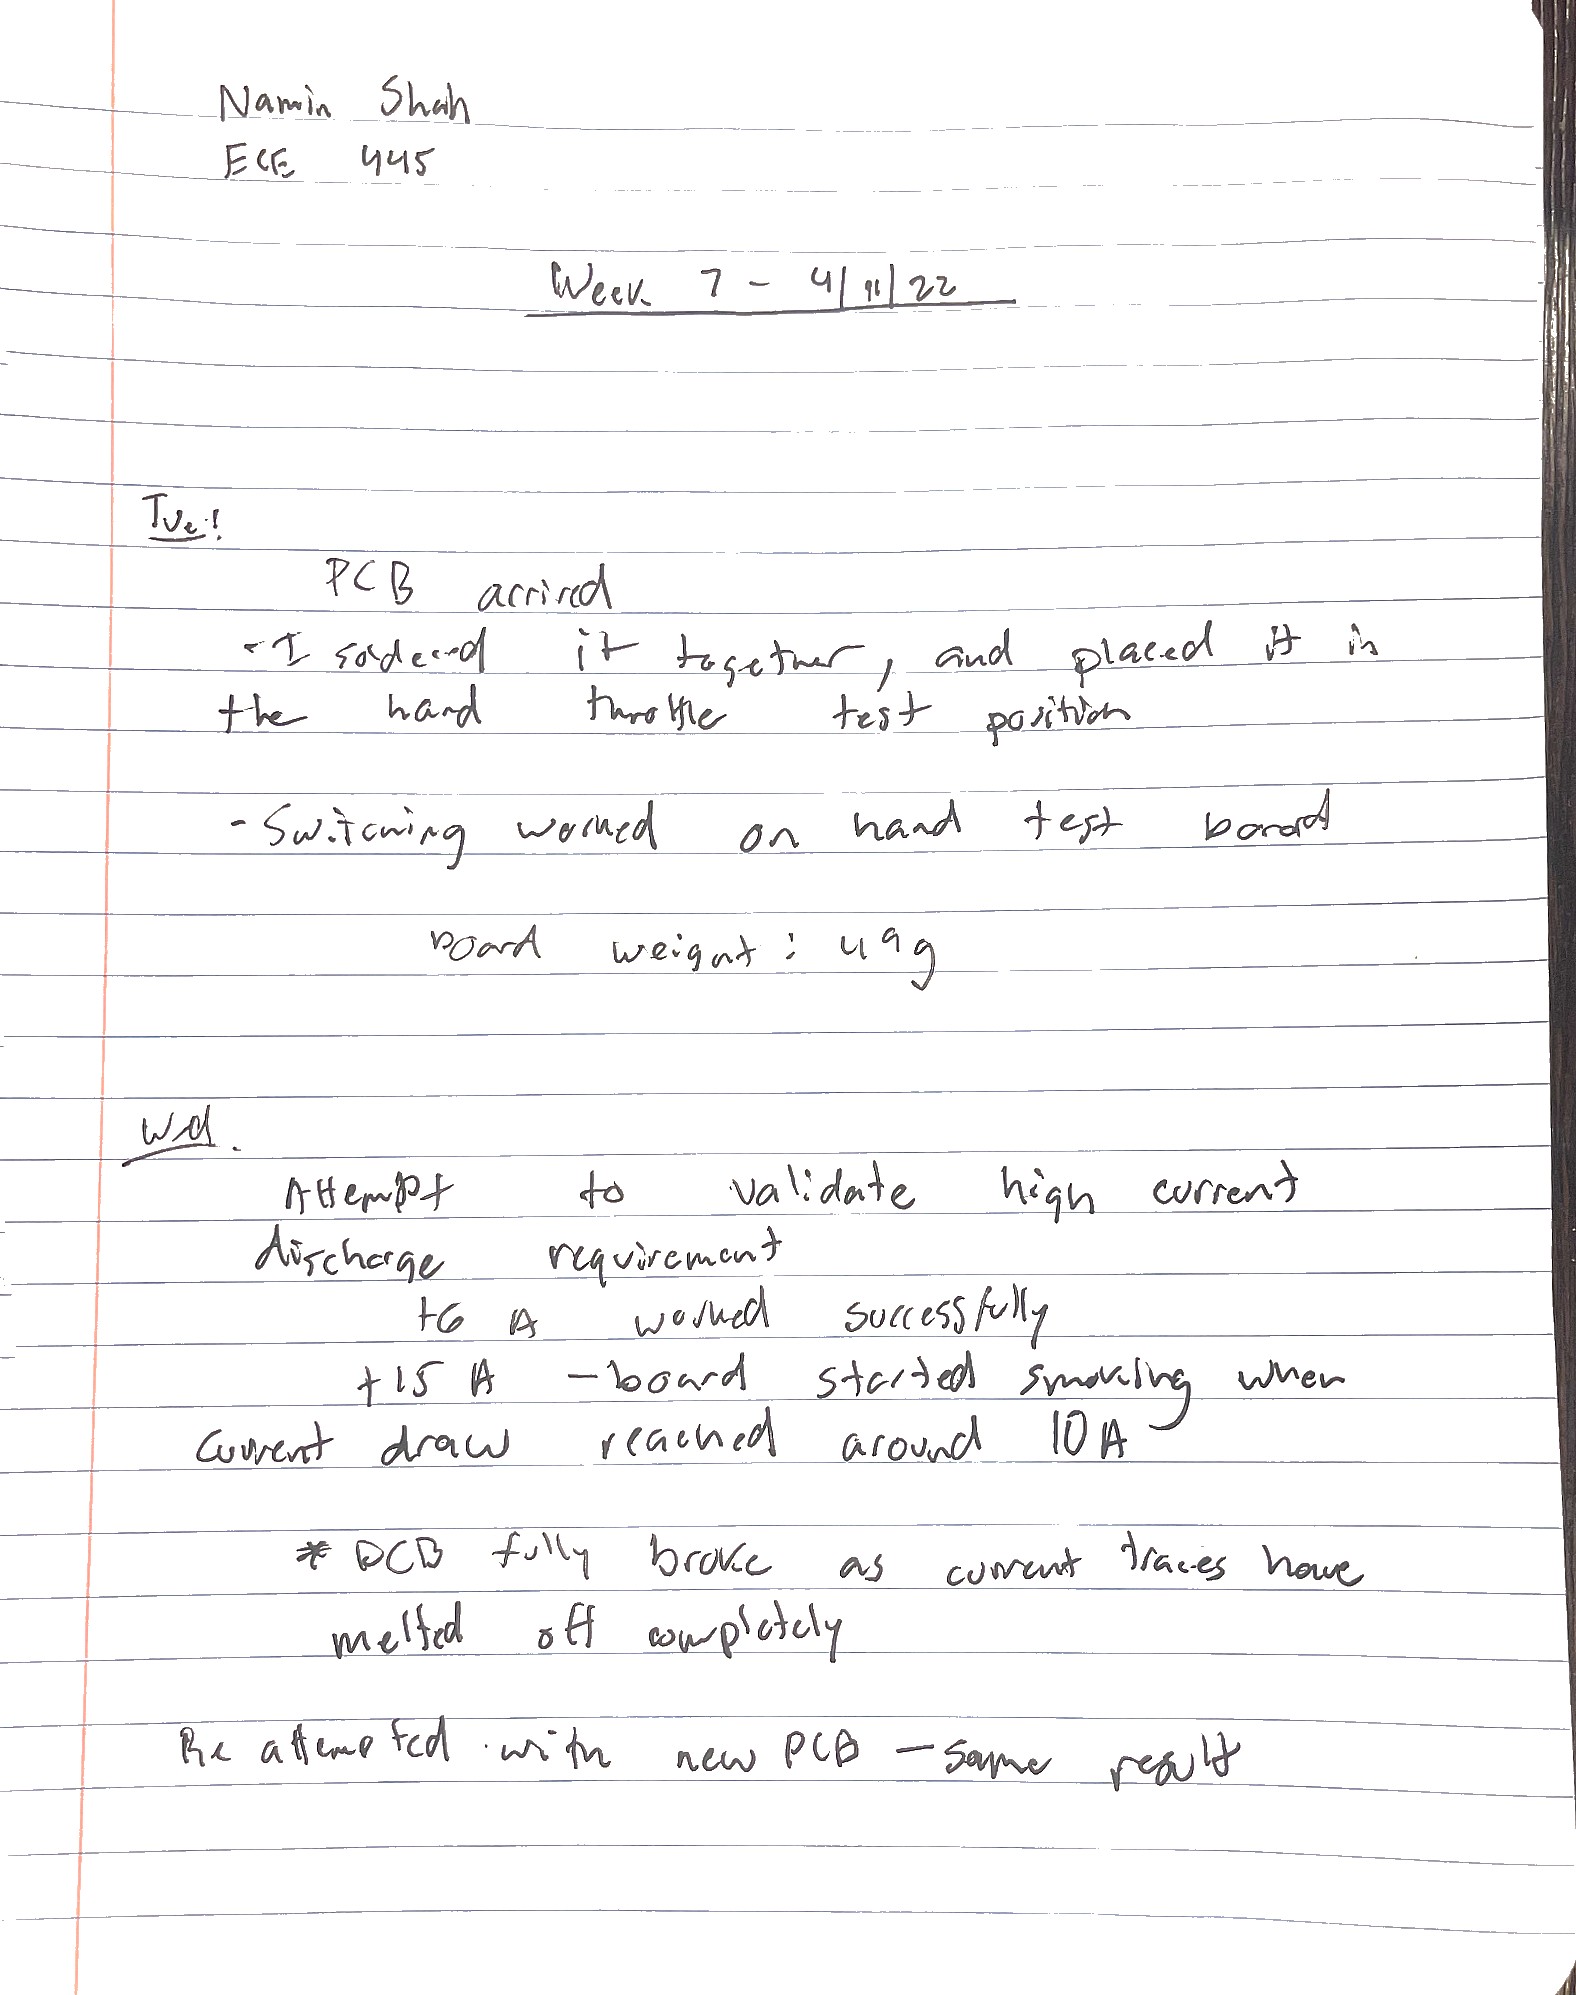 Namin Shah
ECE 445
Week 7 - 4/11/22
Tue:
PCB arrived
- I sodered it together, and placed it in
the hand throttle test position
- Switching worked on hand test board
board weight: 49g
Wed.
Attempt to validate high current
discharge requirement
+6 A worked successfully
+15 A - board started smoking when
current draw reached around 10A
* PCB fully broke as current traces have
melted off completely
Re attempted with new PCB - same result